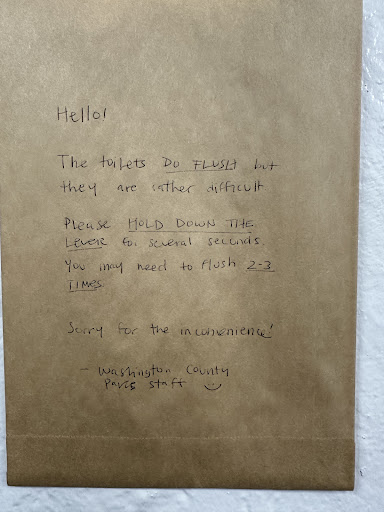 Hello!
The toilets DO FLUSH but
they are rather difficult
Please HOLD DOWN THE
LEVER for several seconds.
You may need to flush 2-3
TIMES
Sorry for the inconvenience!
- Washington County
Parks staff